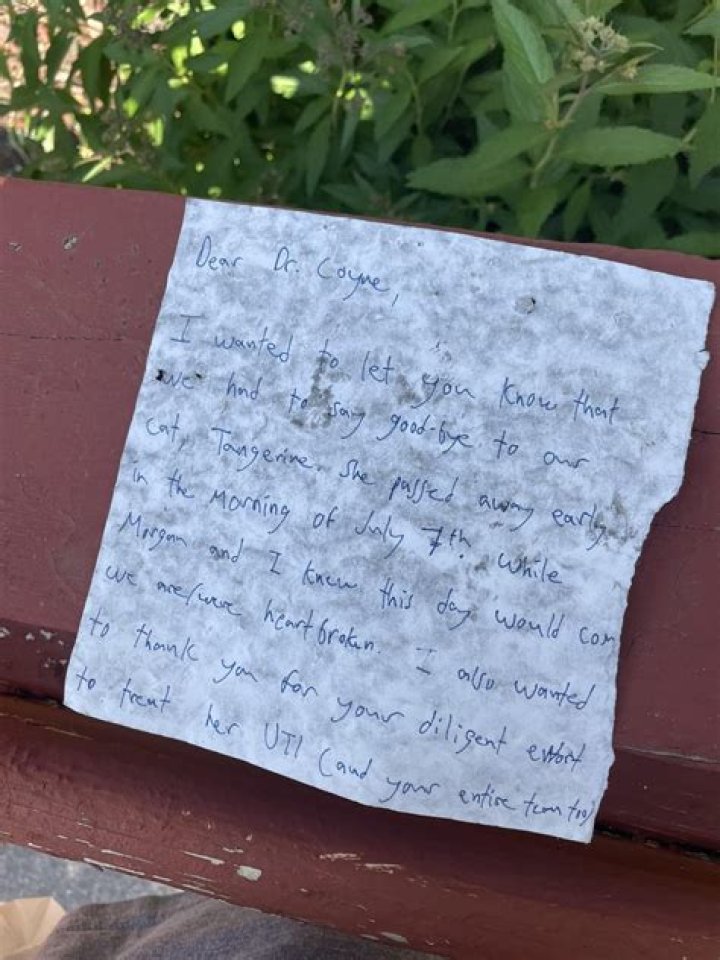 Dear Dr. Coyne,
I wanted to let you know that
we had to say good-bye to our
cat, Tangerine. She passed away early
in the morning of July 7th. While
Morgan and I knew this day would com
we are/were heartbroken. I also wanted
to thank you for your diligent effort
to treat her UTI (and your entire team too)